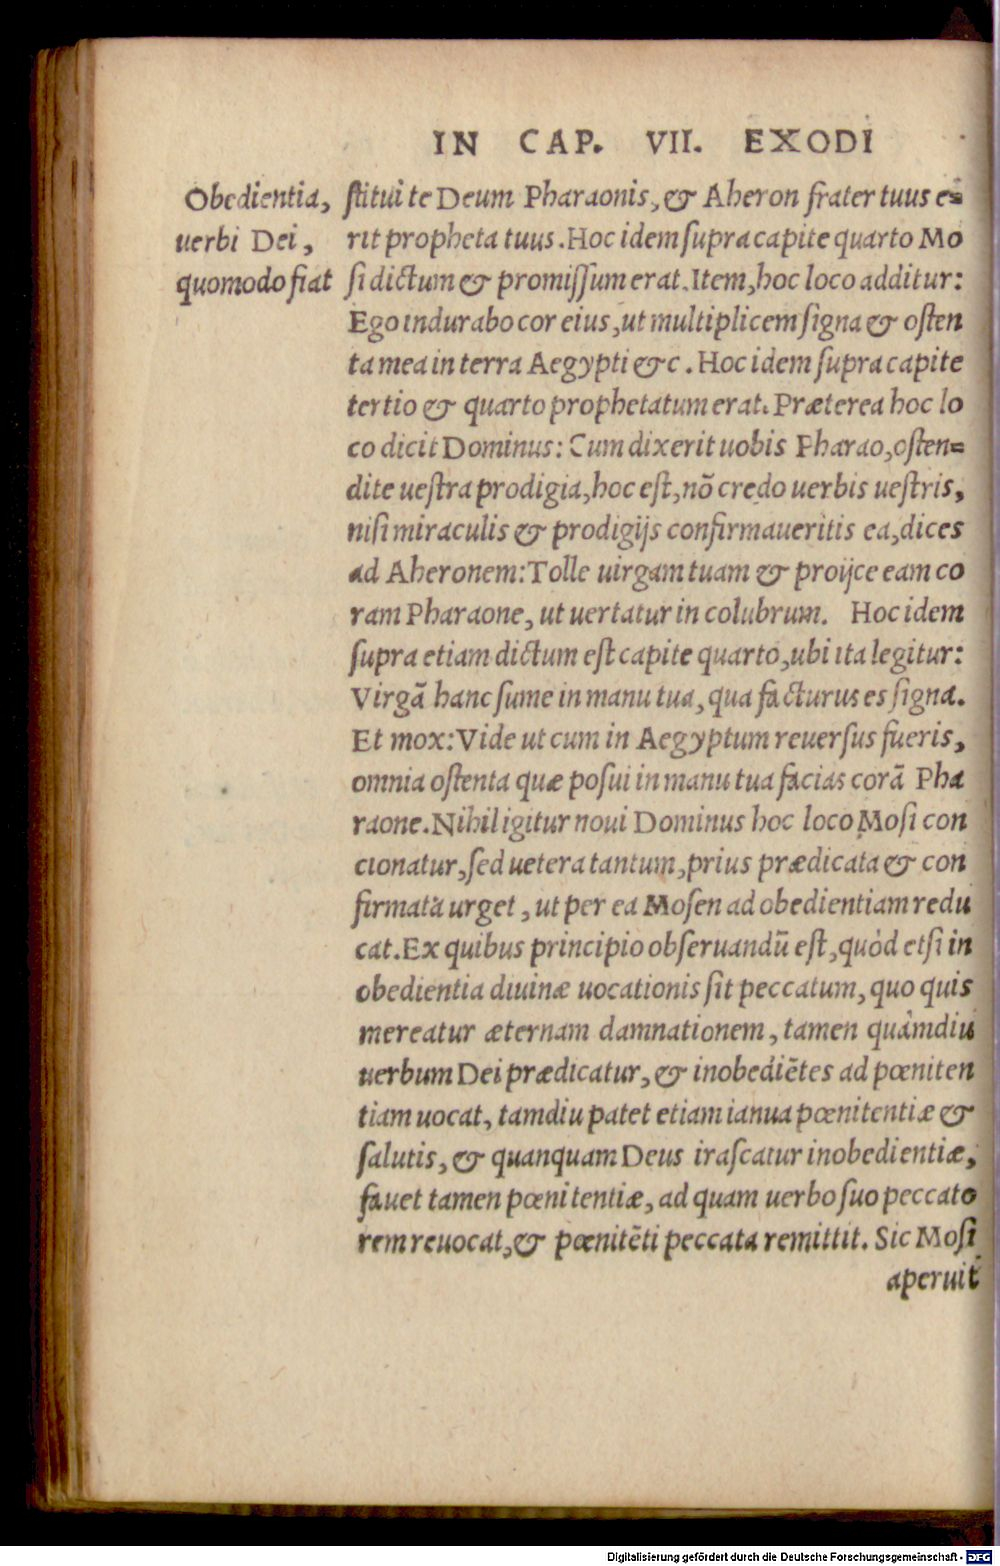 IN CAP. VII. EXODI
Obedientia,
uerbi Dei,
quomodo fiat
ſtitui te Deum Pharaonis, & Aheron frater tuus e=
rit propheta tuus. Hoc idem ſupra capite quarto Mo
ſi dictum & promiſſum erat. Item, hoc loco additur:
Ego indurabo cor eius, ut multiplicem ſigna & oſten
ta mea in terra Aegypti &c. Hoc idem ſupra capite
tertio & quarto prophetatum erat. Præterea hoc lo
co dicit Dominus: Cum dixerit uobis Pharao, oſten=
dite ueſtra prodigia, hoc eſt, nõ credo uerbis ueſtris,
niſi miraculis & prodigijs confirmaueritis ea, dices
ad Aheronem: Tolle uirgam tuam & proijce eam co
ram Pharaone, ut uertatur in colubrum. Hoc idem
ſupra etiam dictum eſt capite quarto, ubi ita legitur:
Virgã hanc ſume in manu tua, qua facturus es ſigna.
Et mox: Vide ut cum in Aegyptum reuerſus fueris,
omnia oſtenta quæ poſui in manu tua facias corã Pha
raone. Nihil igitur noui Dominus hoc loco Moſi con
cionatur, ſed uetera tantum, prius prædicata & con
firmata urget, ut per ea Moſen ad obedientiam redu
cat. Ex quibus principio obſeruandũ eſt, quòd etſi in
obedientia diuinæ uocationis ſit peccatum, quo quis
mereatur æternam damnationem, tamen quàmdiu
uerbum Dei prædicatur, & inobediẽtes ad pœniten
tiam uocat, tamdiu patet etiam ianua pœnitentiæ &
ſalutis, & quanquam Deus iraſcatur inobedientiæ,
fauet tamen pœnitentiæ, ad quam uerbo ſuo peccato
rem reuocat, & pœnitẽti peccata remittit. Sic Moſi
aperuit
Digitalisierung gefördert durch die Deutsche Forschungsgemeinschaft - DFG